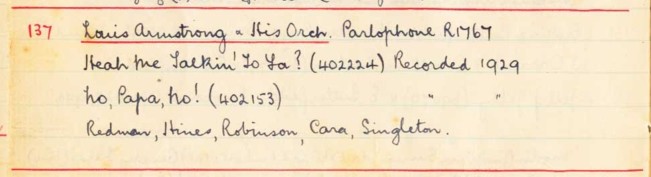 137 Louis Armstrong & His Orch. Parlophone R1767
Heah Me Talkin' To Ya? (402224) Recorded 1929
No, Papa, No! (402153) " "
Redman, Hines, Robinson, Cara, Singleton.